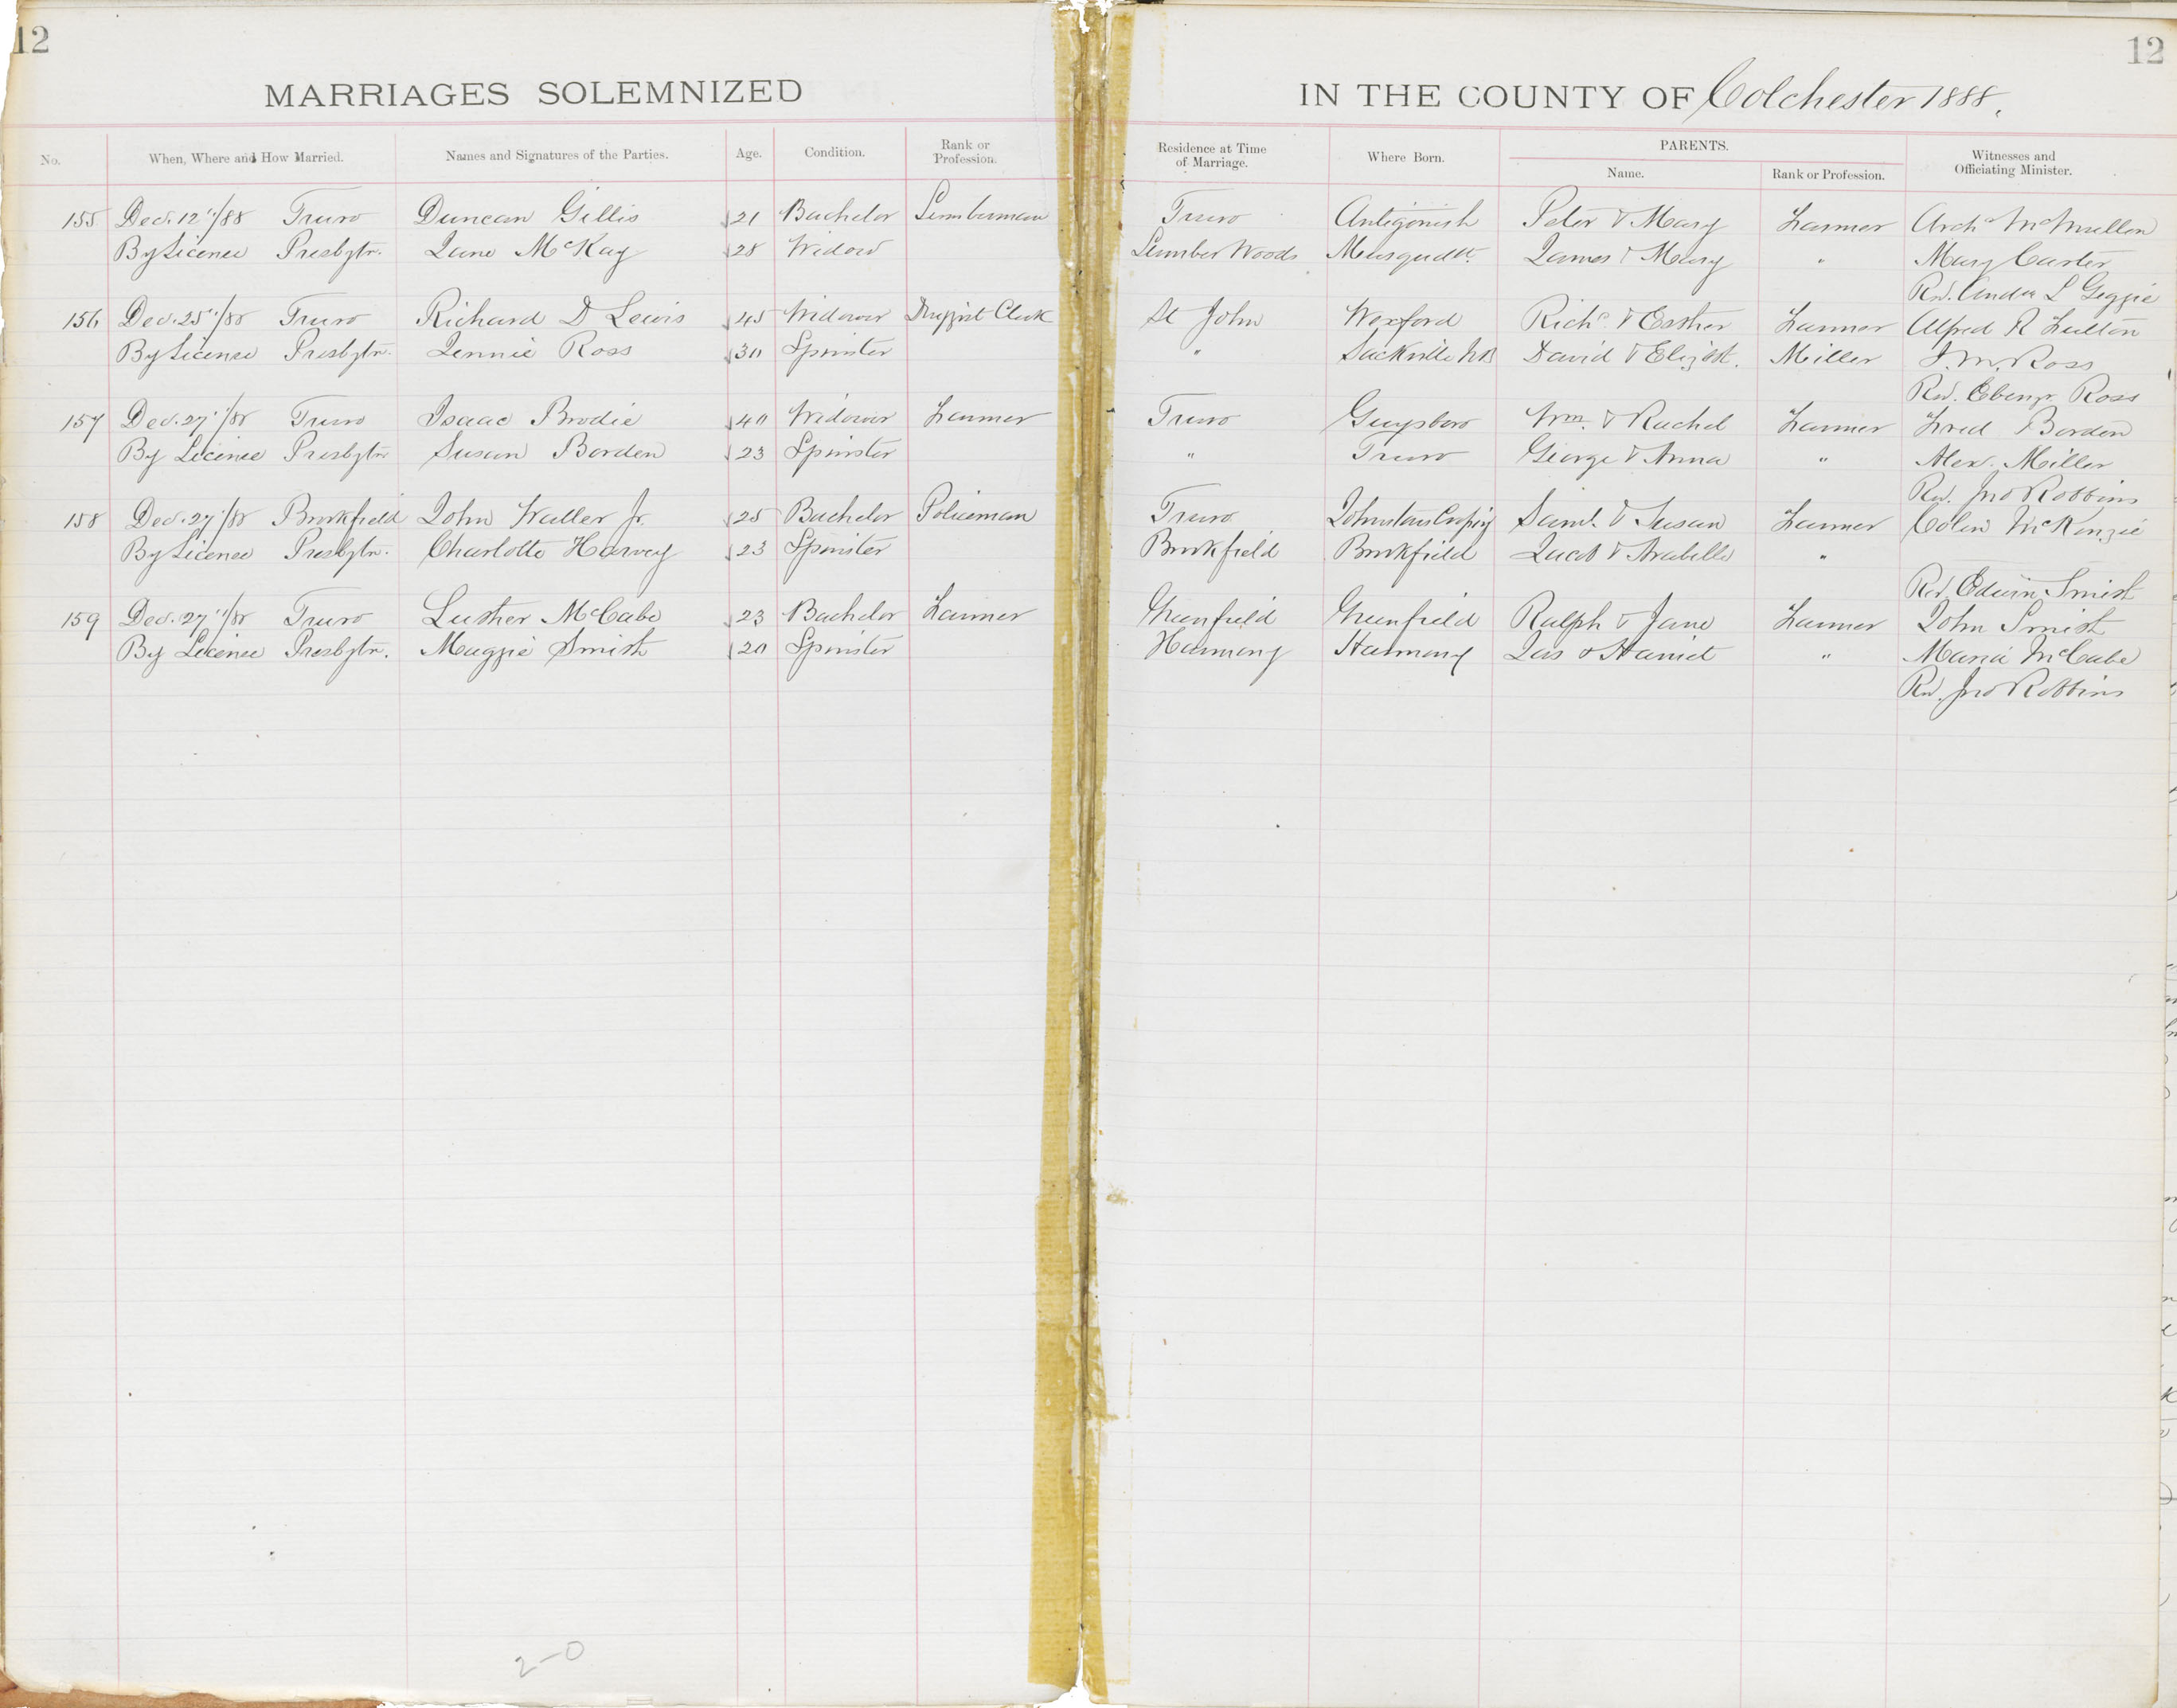 12
12
MARRIAGES SOLEMNIZED IN THE COUNTY OF Colchester 1888.
No. When, Where and How Married. Names and Signatures of the Parties. Age. Condition. Rank or Profession. Residence at Time of Marriage. Where Born. PARENTS. Name. Rank or Profession. Witnesses and Officiating Minister.
155 Dec. 12"/88 Truro Duncan Gillis 21 Bachelor Lumberman Truro Antigonish Peter & Mary Farmer Archd McMullen
By License Presbytn. Jane McKay 28 Widow Lumber Woods Musquodt. James & Mary " Mary Carter
Rev. L Geggie
156 Dec. 25"/88 Truro Richard D Lewis 45 Widower Druggist Clerk St John Wexford Richd. & Esther Farmer Alfred R Fulton
By License Presbytn. Jennie Ross 30 Spinster " Sackville NB David & Elizbt. Miller J. M. Ross
Rev. Ebenzr. Ross
157 Dec. 27"/88 Truro Isaac Brodie 40 Widower Farmer Truro Guysboro Wm. & Rachel Farmer Fred Borden
By License Presbytn Susan Borden 23 Spinster " Truro George & Anna " Alex. Miller
Rev. Jno Robbins
158 Dec. 27"/88 Brookfield John Waller Jr. 25 Bachelor Policeman Truro Saml. & Susan Farmer Colin McKenzie
By License Presbytn. Charlotte Harvey 23 Spinster Brookfield Brookfield Jacob & Arabella "
Rev Edwin Smith
159 Dec. 27"/88 Truro Luther McCabe 23 Bachelor Farmer Greenfield Greenfield Ralph & Jane Farmer John Smith
By License Presbytn. Maggie Smith 20 Spinster Harmony Harmony Jas & Harriet " Maria McCabe
Rev. Jno Robbins
2-0